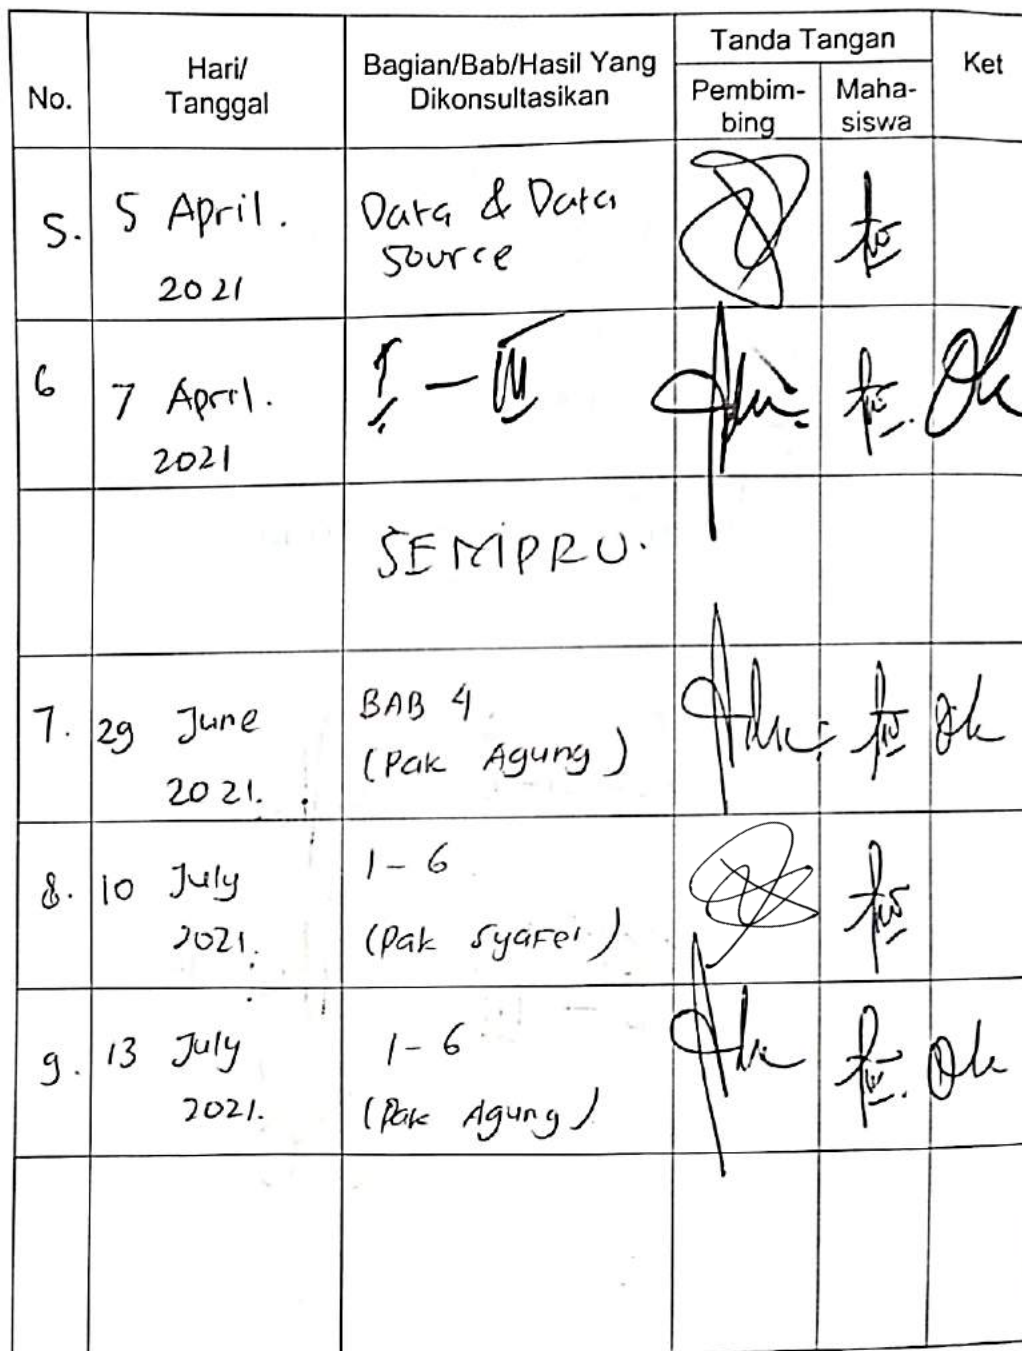 No.
Hari/
Tanggal
Bagian/Bab/Hasil Yang
Dikonsultasikan
Tanda Tangan
Pembim-
bing
Maha-
siswa
Ket
5.
5 April.
2021
Data & Data
Source
6
7 April.
2021
I - III
Ok
SEMIPRU.
7.
29 June
2021.
BAB 4
(Pak Agung)
Ok
8.
10 July
2021.
1-6
(Pak Syafei)
9.
13 July
2021.
1-6
(Pak Agung)
Ok